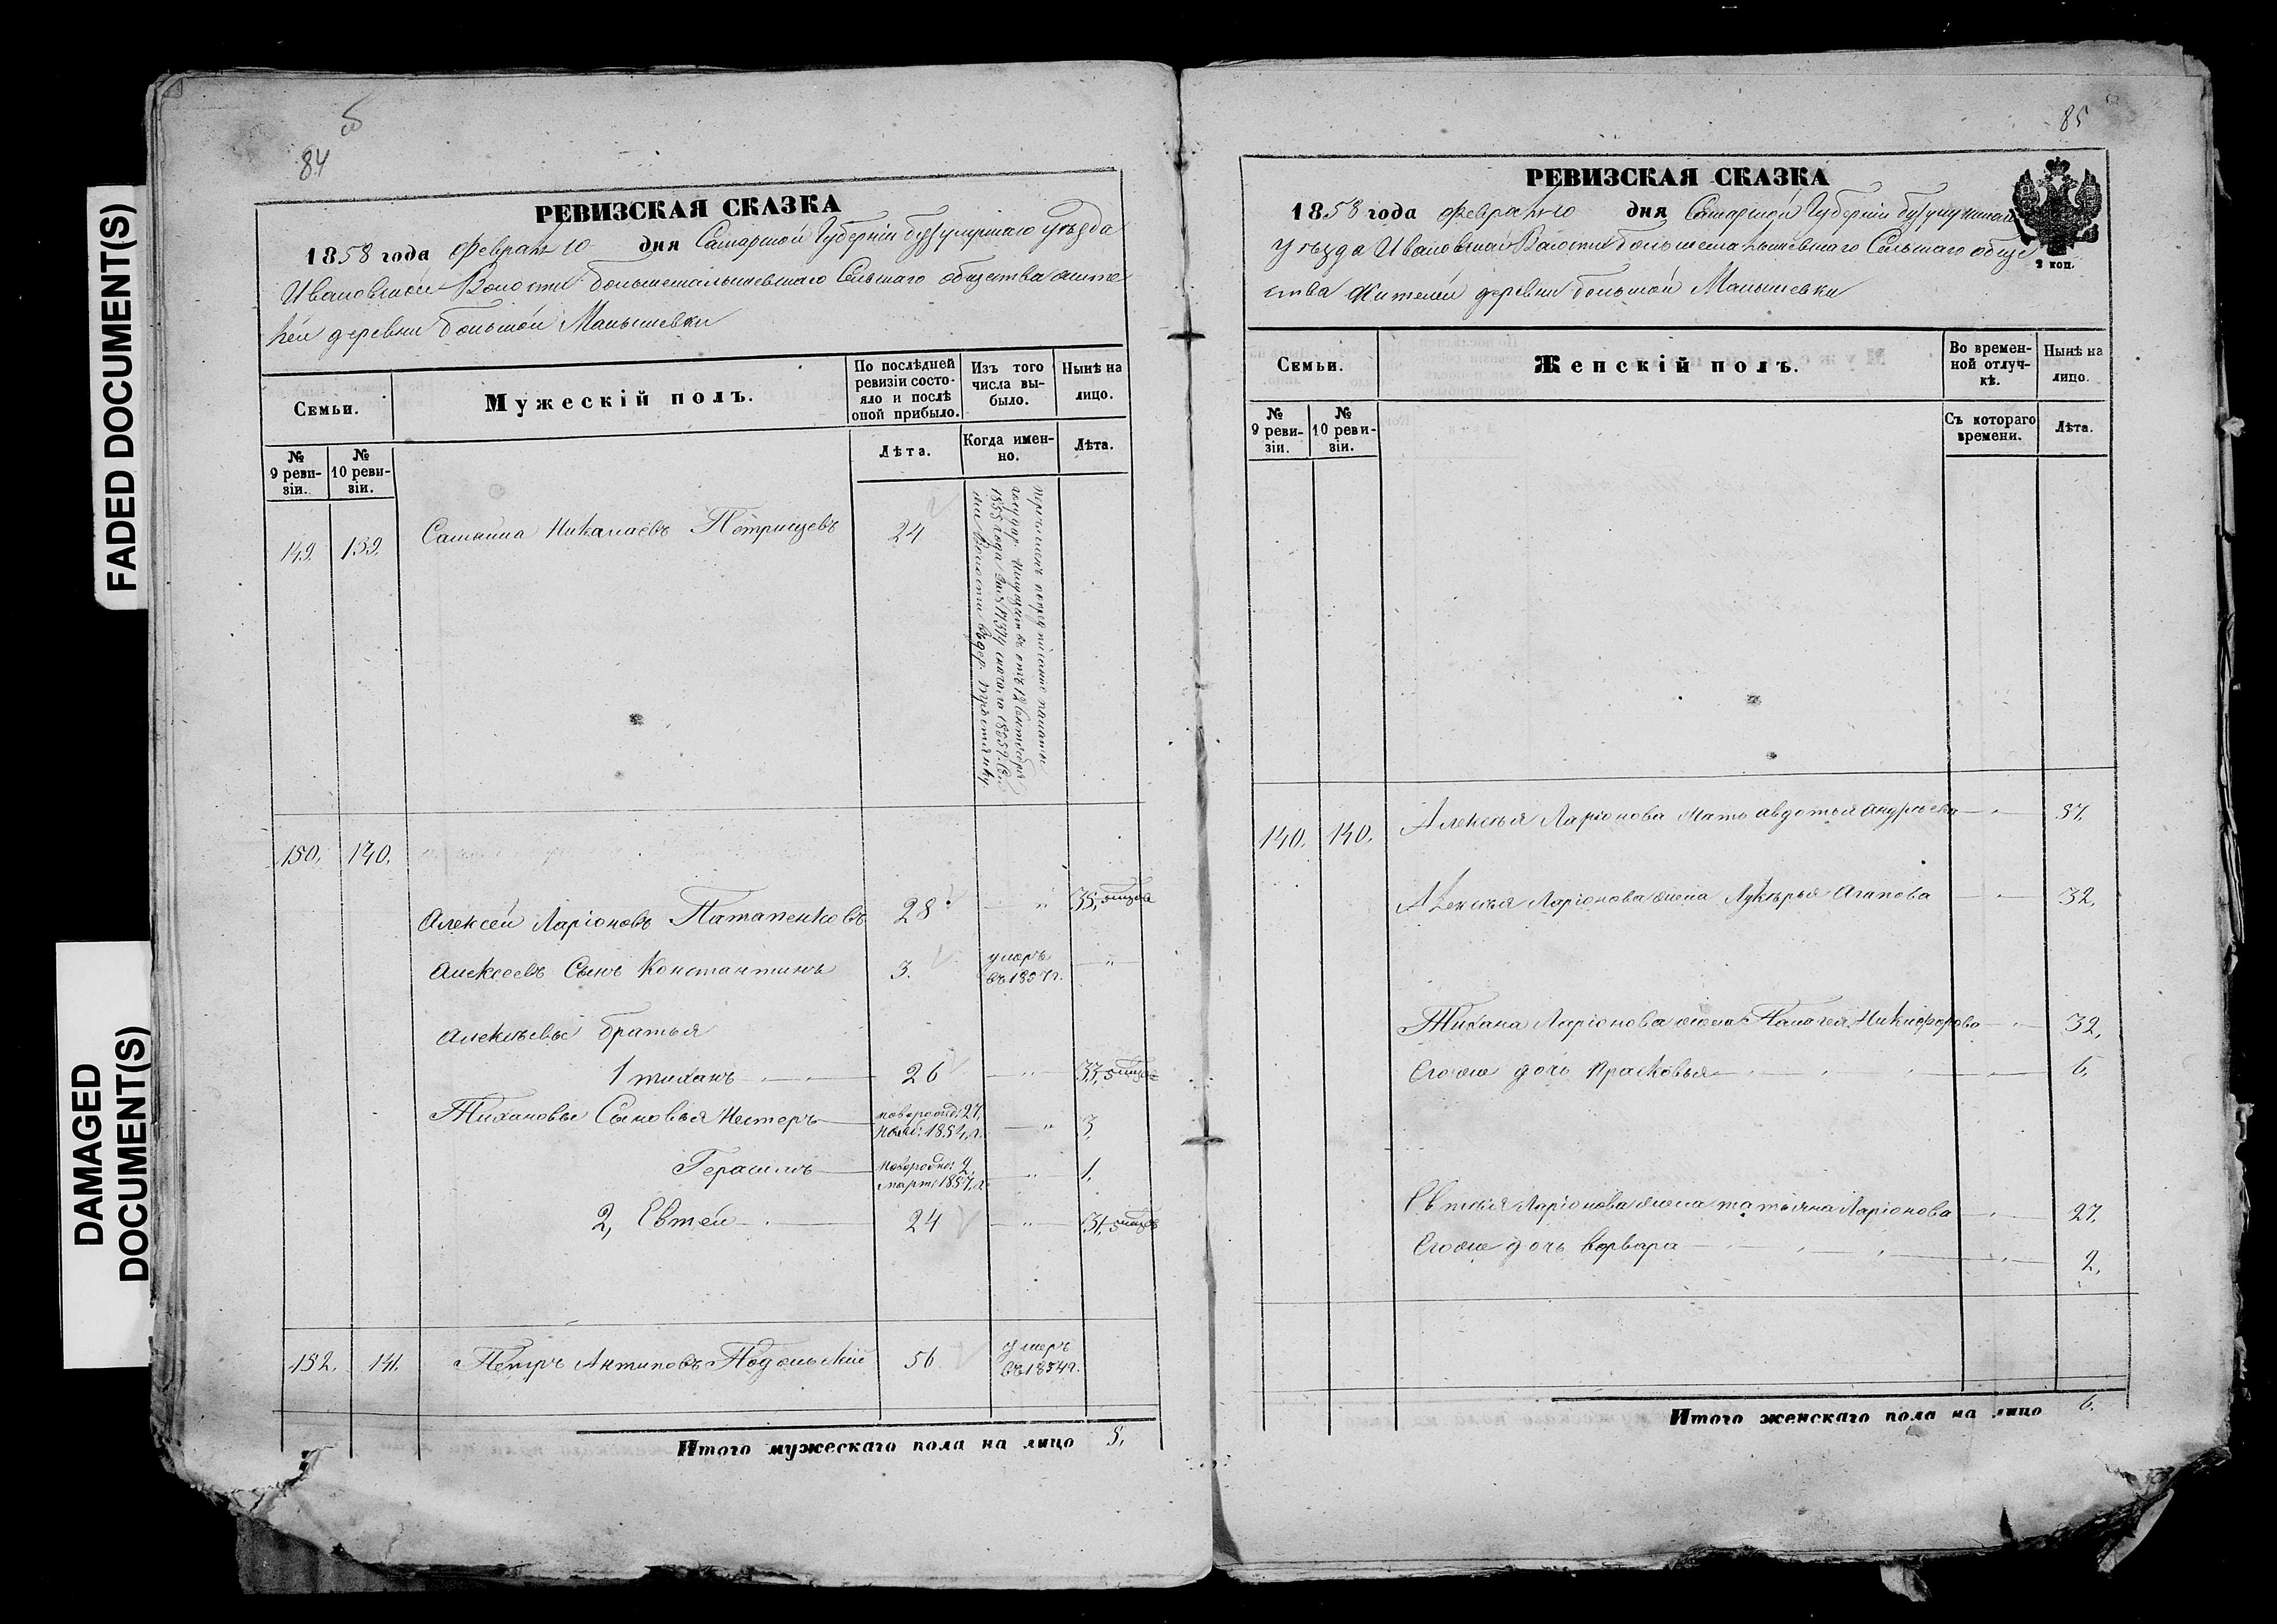 FADED DOCUMENT(S)
DAMAGED
DOCUMENT(S)
84
РЕВИЗСКАЯ СКАЗКА
1858 года Февраля 10 дня Самарской Губернiи бузулуцкаго уѣзда
Ивановской Волости большемалышевскаго Сельскаго общества жите
лей деревни большой Малышевки
Семьи.
Мужескiй полъ.
По послѣдней
ревизiи состо-
яло и послѣ
оной прибыло.
Изъ того
числа вы-
было.
Нынѣ на
лицо.
№
9 реви-
зiи.
№
10 реви-
зiи.
Лѣта.
Когда имен-
но.
Лѣта.
149. 139. Николаевъ Петрищевъ 24
150. 140.
Алексей Ларiоновъ Патапенковъ 28 " 35,
Алексеевъ Сынъ Константинъ 3. умеръ
въ 1857 г. "
Алексѣевы братья
1 тиханъ 26 " 33,
Тихановы Сыновья Нестеръ новорожд: 27,
1854, г. " 3
Герасимъ новорожд: 2,
март: 1857, г. " 1.
2, Евтей 24 " 31,
152. 141. Петръ Антиповъ Подольскiй 56 умеръ
въ 1854 г.
Итого мужескаго пола на лицо 5.
85
РЕВИЗСКАЯ СКАЗКА
1858 года Февраля 10 дня Самарской Губернiи бузулуцкаго
Уѣзда Ивановской Волости большемалышевскаго Сельскаго обще
ства Жителей деревни большой Малышевки
2 коп.
Семьи.
Женскiй полъ.
Во времен-
ной отлуч-
кѣ.
Нынѣ на
лицо.
№
9 реви-
зiи.
№
10 реви-
зiи.
Съ котораго
времени.
Лѣта.
140. 140. Алексѣя Ларiонова Мать авдотья андрѣева " 57.
Алексѣя Ларiонова жена Лукерья Агапова " 32,
Тихана Ларiонова жена Палагея Никифорова " 32,
Егоже дочь Прасковья " 6,
Евтѣя Ларiонова жена татьяна Ларiонова " 27,
Егоже дочь Варвара " 2,
Итого женскаго пола на лицо 6.